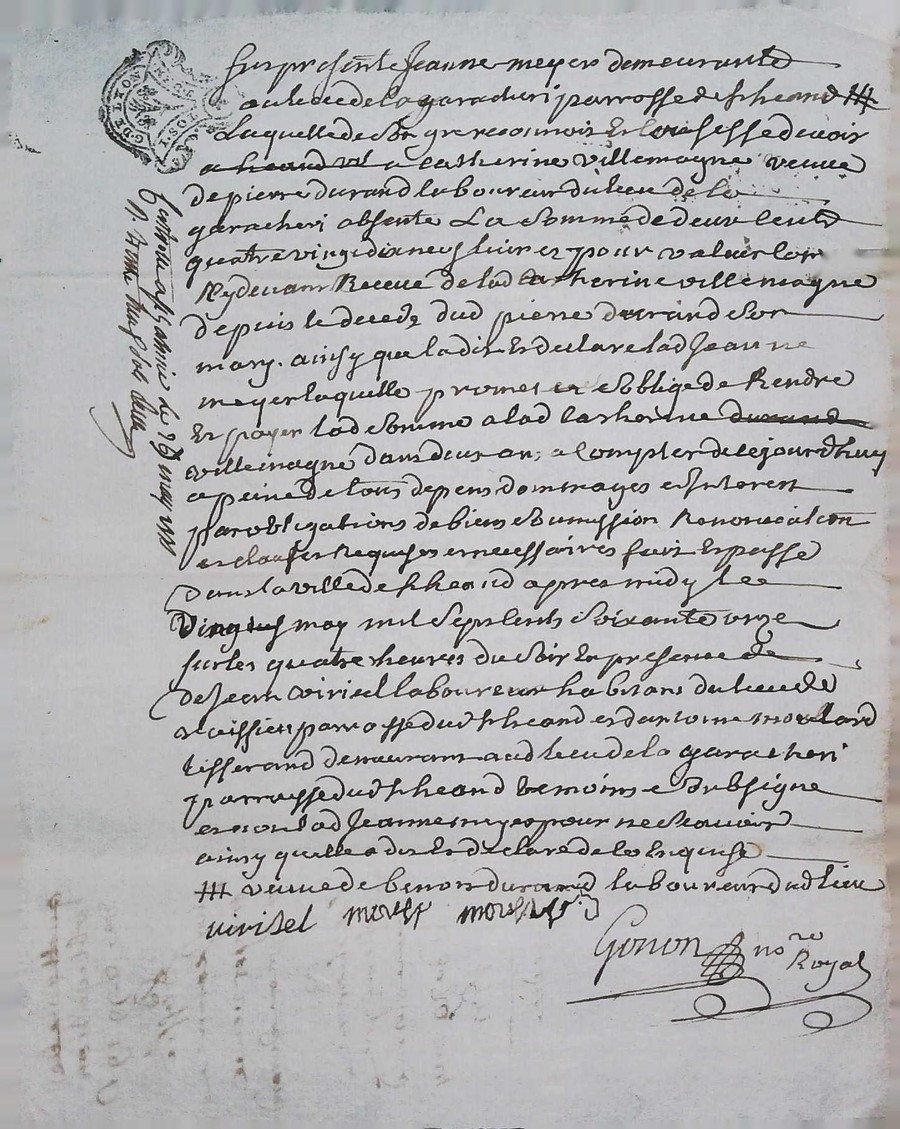 G. DE LYON
Fut presente Jeanne meyer demeurante
au lieu de la garacheri parrosse de St heand ###
Laquelle de Son gré reconnoit Et Confesse devoir
a heand a Catherine villemagne veuve
de pierre durand laboureur du lieu de la
garacheri absente La Somme de deux Cents
quatre vingt dix neuf livres pour valeur
Cydevant Receue de lad Catherine villemagne
depuis le deces dud pierre durand Son
mary. ainsy que la dit Et declare lad Jeanne
meyer laquelle promet et Soblige de Rendre
Et payer lad Somme a lad Catherine durand
villemagne dans deux ans a Compter de cejourdhuy
a peine de tous depens dommages et Interets
par obligations de biens Soumission Renonciation
et clauses Requises et necessaires fait Et passé
Dans la ville de St heand apres midy Le
Vingt six may mil Sept Cents Soixante onze
sur les quatre heures du Soir En presence de
de Jean viricel laboureur habitant du lieu de
parrosse dud St heand et dantoine moulard
tisserand demeurant aud lieu de la garacheri
parrosse dud St heand temoins Soubsigné
et non lad Jeanne meyer pour ne Scavoir
ainsy quelle a dit Et declaré de ce Enquise
### veuve de benoit durand laboureur dud lieu
viricel
Gonon no.re
Royal
Controllé a St le 26 may 1771
R.